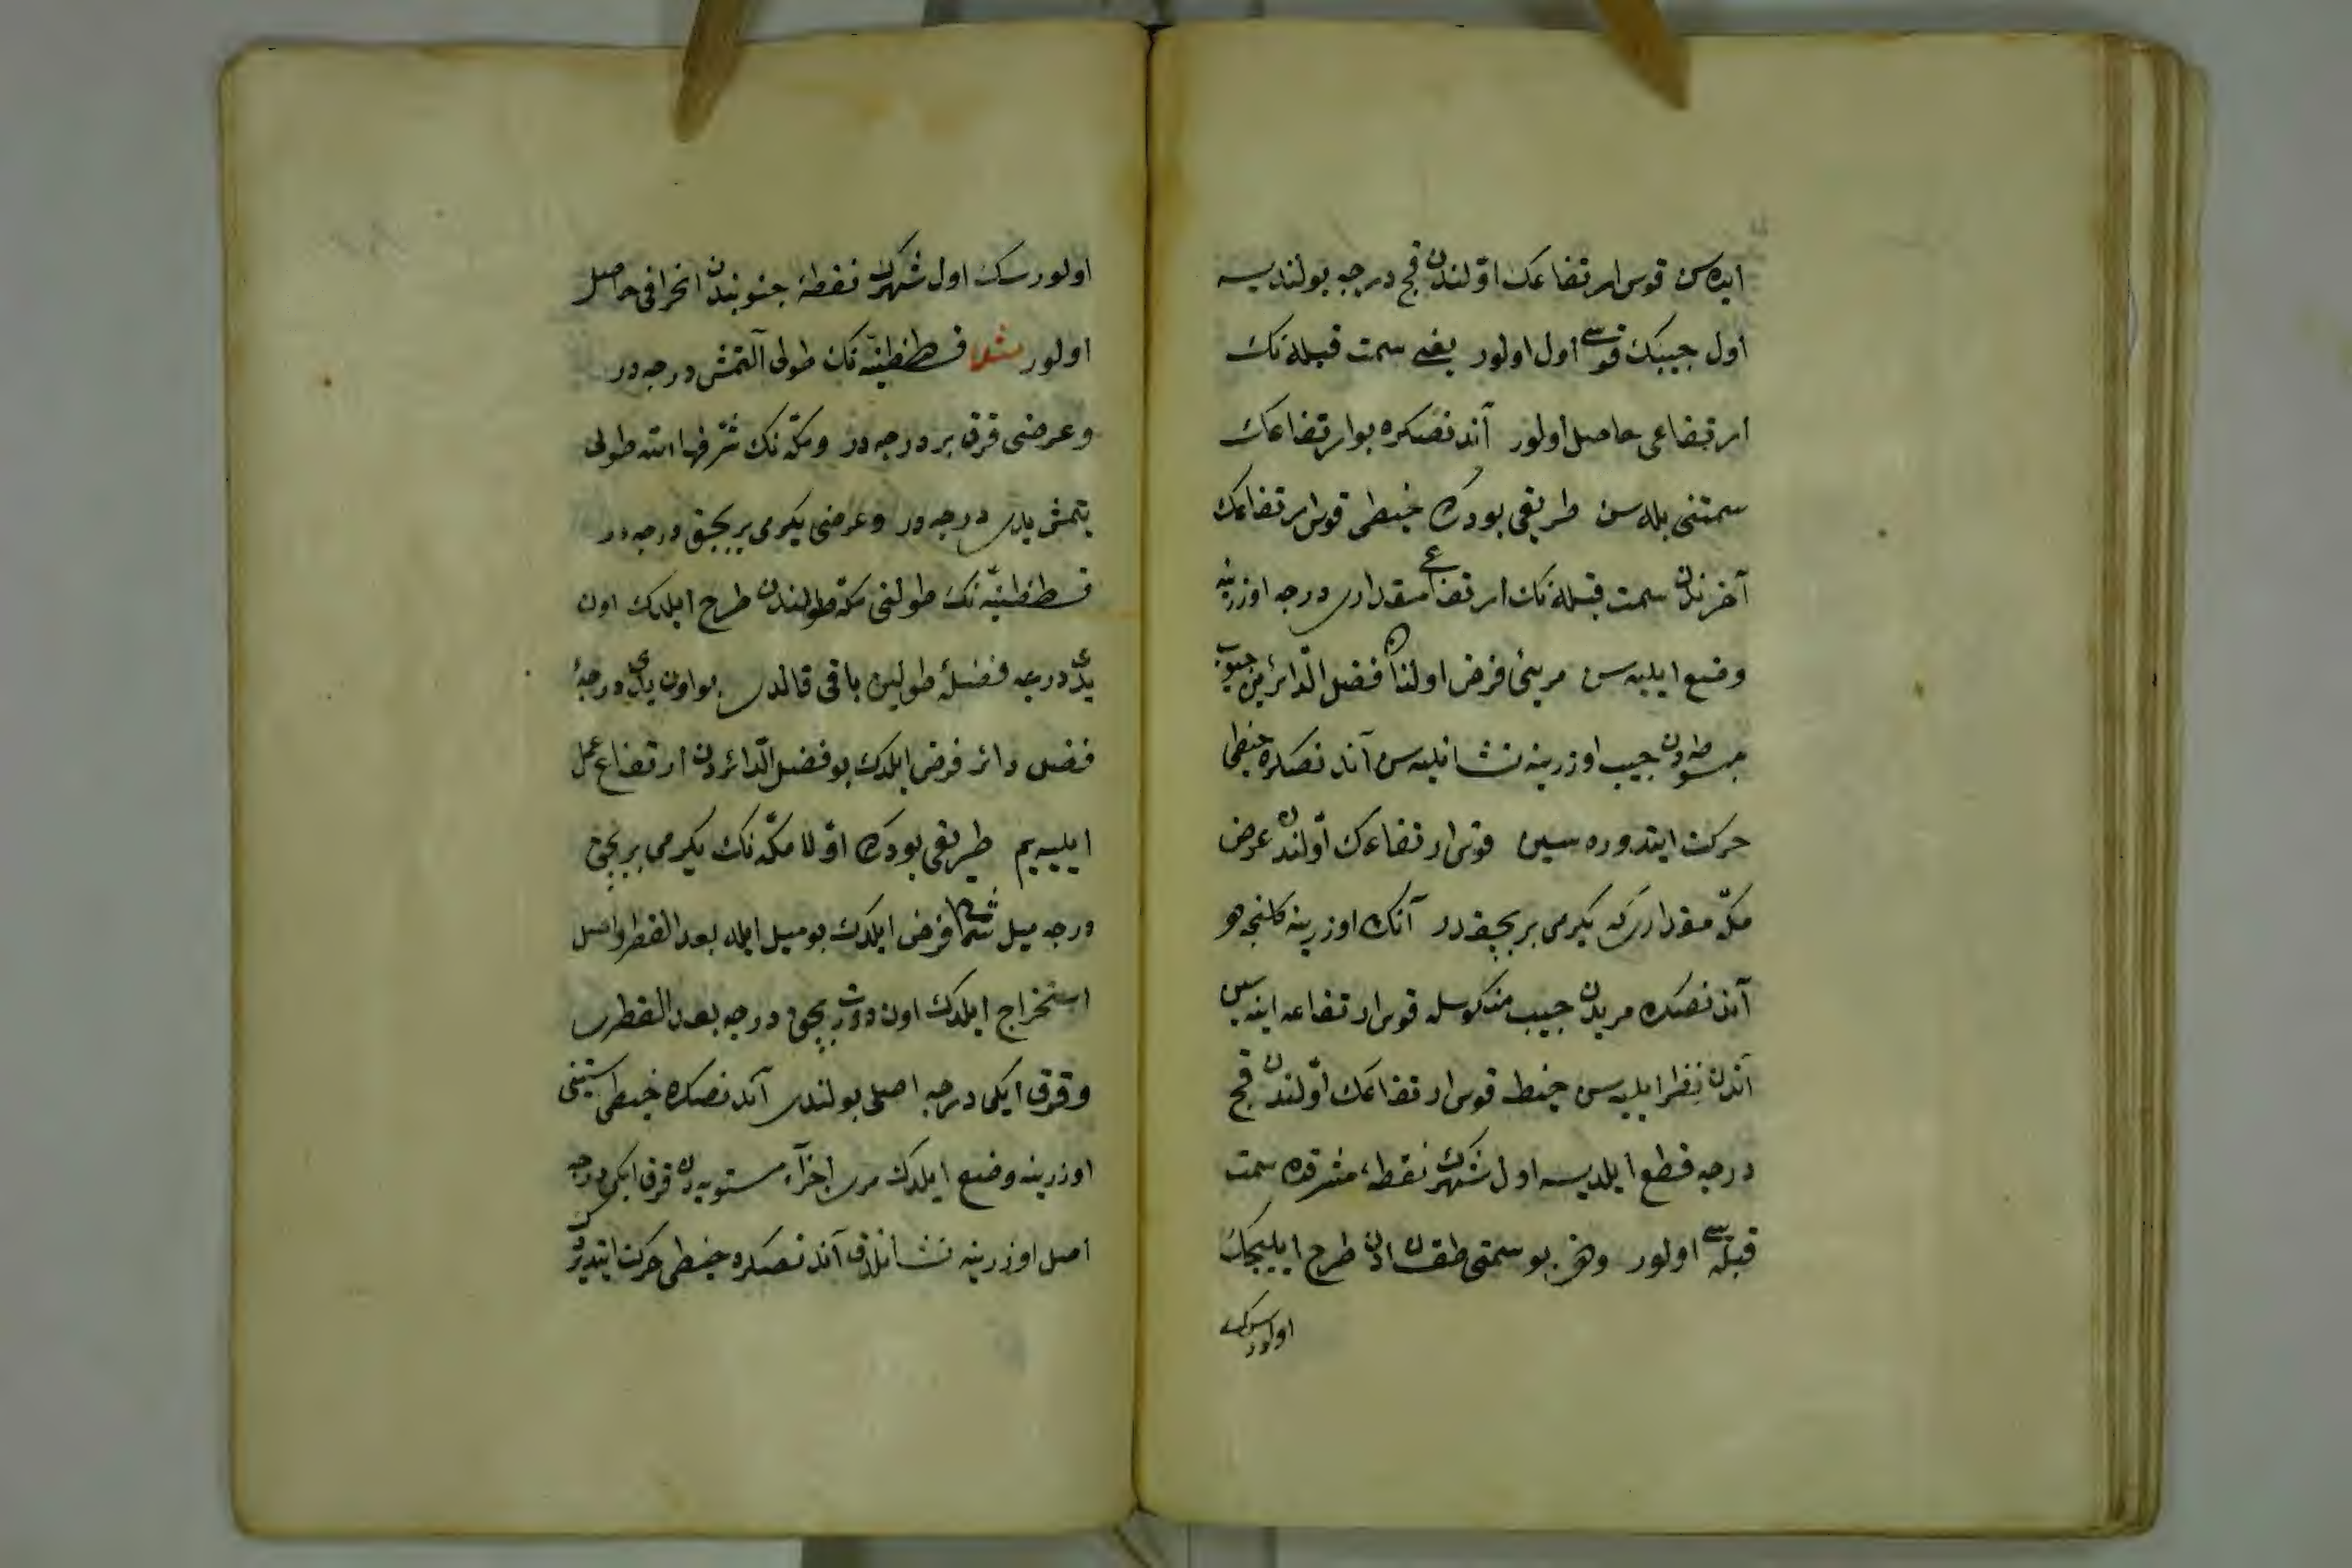 ایده سن قوس ارتفاعك اوّلندن قچ درجه بولندیسه
اول جیبك قوسی اول اولور یعنی سمت قبله نك
ارتفاعی حاصل اولور آندنصكره بو ارتفاعك
سمتنی بله سن طریقی بودركه خیطی قوس ارتفاعك
آخرندن سمت قبله نك ارتفاعی مقداری درجه اوزرینه
وضع ایلیه سن مریئی فرض اولنان فضل الدّائرین جیوب
مبسوطه دن جیب اوزرینه نشانلیه سن آندنصكره خیطی
حركت ایتدوره سین قوس ارتفاعك اوّلندن عرض
مكّه مقداری كه یكرمی بر بچقدر آنك اوزرینه كلنجه هو
آندنصكره مریدن جیب منكوسله قوس ارتفاعه اینه سین
آندن نظر ایلیه سن خیط قوس ارتفاعك اوّلندن قچ
درجه قطع ایلدیسه اول شهرك نقطهٔ مشرقده سمت
قبله سی اولور وهن بو سمتی طقساندن طرح ایلیجك
اولورسك
اولورسك اول شهرك نقطهٔ جنوبندن انحرافی حاصل
اولور مثلا قسطنطنیّه نك طولی آلتمش درجه در
وعرضی قرق بر درجه در ومكّه نك شرّفها الله طولی
یتمش یدی درجه در وعرضی یكرمی بر بچق درجه در
قسطنطنیّه نك طولنی مكّه طولندن طرح ایلدك اون
یدی درجه فضلهٔ طولین باقی قالدی بو اون یدی درجهٔ
فضل دائر فرض ایلدك بو فضل الدّائردن ارتفاع عمل
ایلیه یم طریقی بودركه اوّلا مكّه نك یكرمی بر بچق
درجه میل شمالی فرض ایلدك بو میل ایله بعد القطر واصل
استخراج ایلدك اون دورت بچق درجه بعد القطری
وقرق ایكی درجه اصلی بولندی آندنصكره خیطی ستینی
اوزرینه وضع ایلدك مری اجزآء مستویه دن قرق ایكی درجه
اصل اوزرینه نشانلدق آندنصكره خیطی حركت ایتدیردك